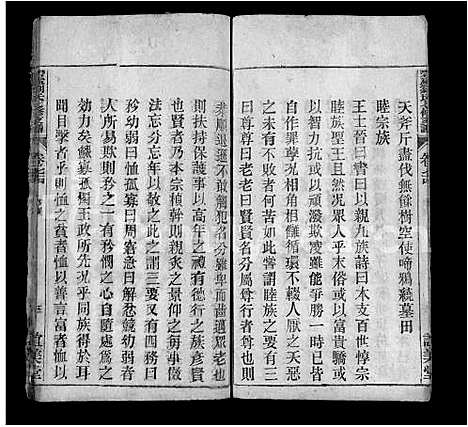 天斧斤盡伐無餘樹空使啼鴉繞墓田
睦宗族
王士晉曰書曰以親九族詩曰本支百世惇宗
睦族聖王且然況眾人乎末俗或以富貴驕或
以智力抗或以頑潑欺凌雖能爭勝一時
自作罪孽 相讎循環不輟人厭之天惡
之未有不敗者何苦如此嘗謂睦族之要有三
曰尊尊曰老老曰賢賢名分屬尊行者尊也則
恭順退遜不敢觸犯名分雖卑而齒邁眾老也
則扶持保護事以高年之禮有德行之族彥賢
也賢者乃本宗楨幹則親炙之景仰之每事效
法忘分忘年以敬之此之謂三要又有四務曰
矜幼弱曰恤孤寡曰周窘急曰解忿競幼弱
人所易欺則矜之一有矜憫之心自隨處為之
效力矣鰥寡孤獨王政所先況乎同族得於耳
聞目擊者乎則恤之貧者恤以善言富者恤以